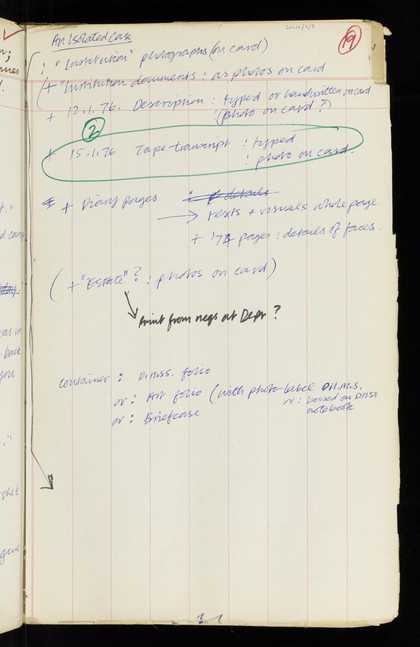 An Isolated Case
19
: "Institution" photographs (on card)
(+ "Institution documents : as photos on card
+ 12.1.76. Description : typed or handwritten on card
(photo on card ?)
2
+ 15.1.76 Tape transcript : typed
: photo on card.
+ Diary pages : details
→ texts + visuals whole page
+ '74 pages : details of faces.
(+ "Estate"? : photos on card)
Print from negs at Dept ?
container : D.H.S.S. folio
or : Art folio (with photo-label D.H.S.S.
or : Briefcase
or : based on DHSS
notebook